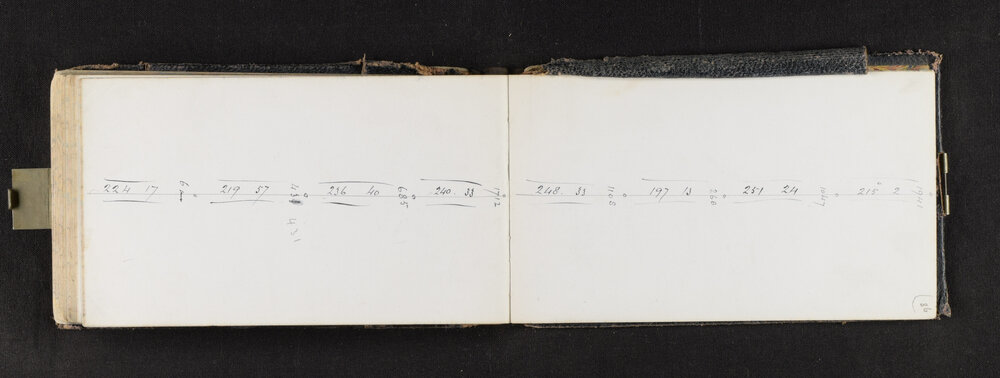 224 17 219 57 236 40 685 240. 33 1712
431
248. 33 1108 197 13 260 251 24 1047 215° 2 1941